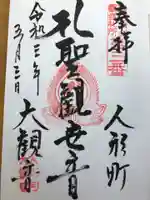 奉拝
人形町
聖観世音
大観音
令和三年
五月三日